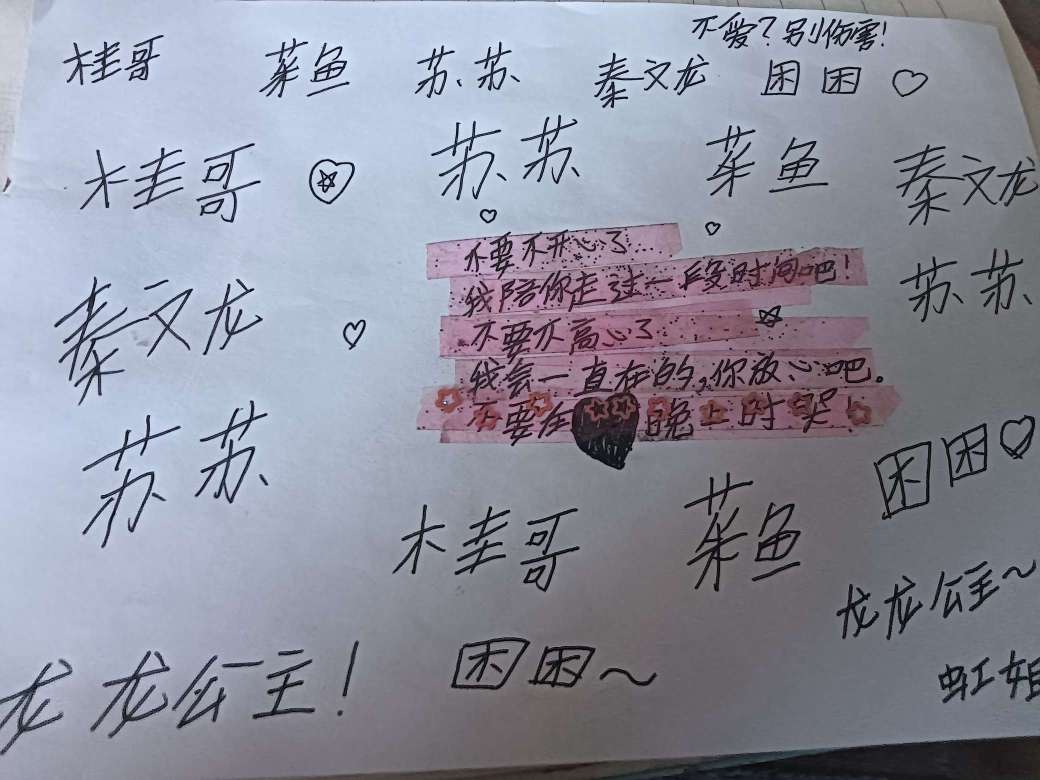 不爱？别伤害！
桂哥 菜鱼 苏苏 秦文龙 困困
桂哥 苏苏 菜鱼 秦文龙
不要不开心了...
我陪你走过一段时间吧！
秦文龙 苏苏
不要不高心了
我会一直在的，你放心吧。
不要在 晚上时哭！
苏苏 困困
桂哥 菜鱼
龙龙公主～
龙龙公主！ 困困～ 虹姐